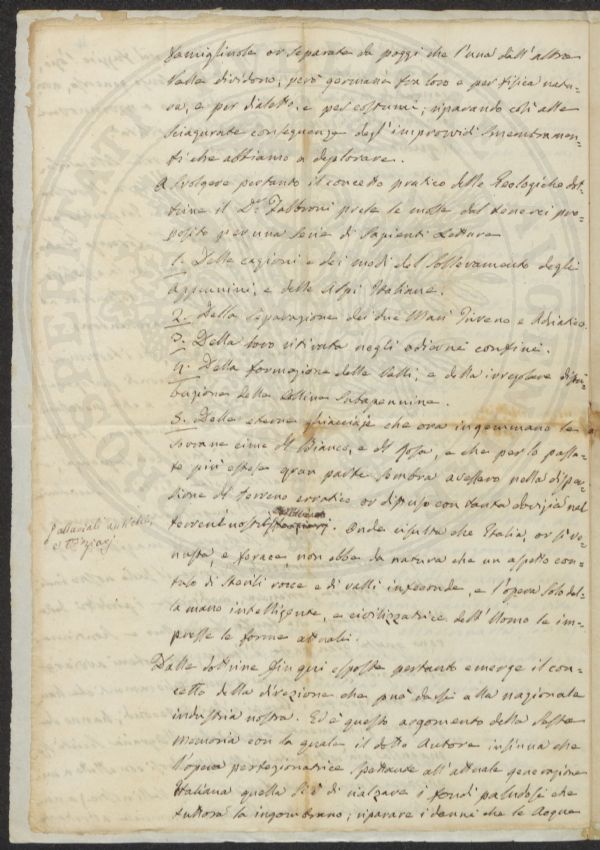 famigliuole or separate da poggi che l'una dall'altra
Valle dividono; però germane fra loro e per fisica natu-
ra, e per dialetto, e per costumi; riparando così alle
sciagurate conseguenze degl'improvvidi smembramen-
ti che abbiamo a deplorare.
A svolgere pertanto il concetto pratico delle Geologiche dot-
trine il Dr. Fabbroni prese le mosse dal tenerci pro-
posito per una serie di sapienti Letture
1. Delle cagioni e dei modi del sollevamento degli
Appennini, e delle Alpi Italiane.
2. Della separazione dei due Mari Tirreno, e Adriatico.
3. Della loro ritirata negli odierni confini.
4. Della formazione delle Valli, e della irregolare distri-
buzione della collina Subapennina.
5. Delle eterne ghiacciaje che ora ingemmano le
sovrane cime del Bianco, e del Rosa, e che per lo passa-
to più estese gran parte sembra avessero nella disper-
sione del terreno erratico or diffuso con tanta dovizia nei
terreni nostri. Onde risulta che Italia, or sì ve-
nusta, e ferace, non ebbe da natura che un aspetto con-
fuso di sterili rocce e di valli infeconde, e l'opera solo del-
la mano intelligente, e civilizzatrice dell'Uomo le im-
presse le forme attuali.
Dalle dottrine fin qui esposte pertanto emerge il con-
cetto della direzione che può darsi alla nazionale
industria nostra. Ed è questo argomento della sesta
Memoria con la quale il dotto Autore insinua che
l'opera perfezionatrice spettante all'attuale generazione
Italiana quella si è di rialzare i fondi paludosi che
tuttora la ingombrano; riparare i danni che le Acque